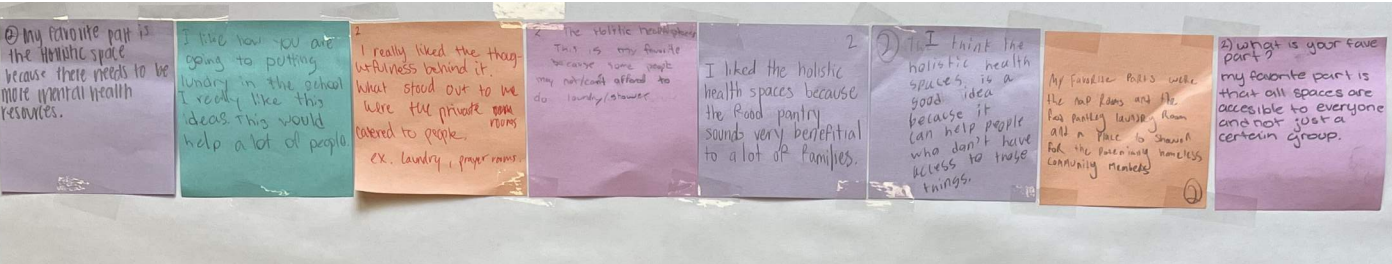 ② My favorite part is
the Holistic space
because there needs to be
more mental health
resources.
I like how you are
going to putting
lundry in the school
I really like this
ideas. This would
help a lot of people.
2
I really liked the thoug-
htfulness behind it.
What stood out to me
were the private
rooms
catered to people.
ex. laundry, prayer rooms.
2 The Holitic health
This is my favorite
because some people
may not/can't afford to
do laundry/shower
2
I liked the holistic
health spaces because
the food pantry
sounds very benefitial
to a lot of families.
② I think the
holistic health
spaces is a
good idea
because it
can help people
who don't have
access to those
things.
My favorite parts were
the nap Rooms and the
food pantry laundry Room
and a place to shower
for the
homeless
community members
②
2) what is your fave
part?
my favorite part is
that all spaces are
accesible to everyone
and not just a
certein group.